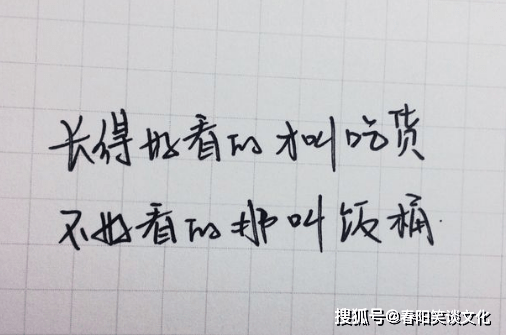 长得好看的才叫吃货
不好看的那叫饭桶.
搜狐号@春阳笑谈文化